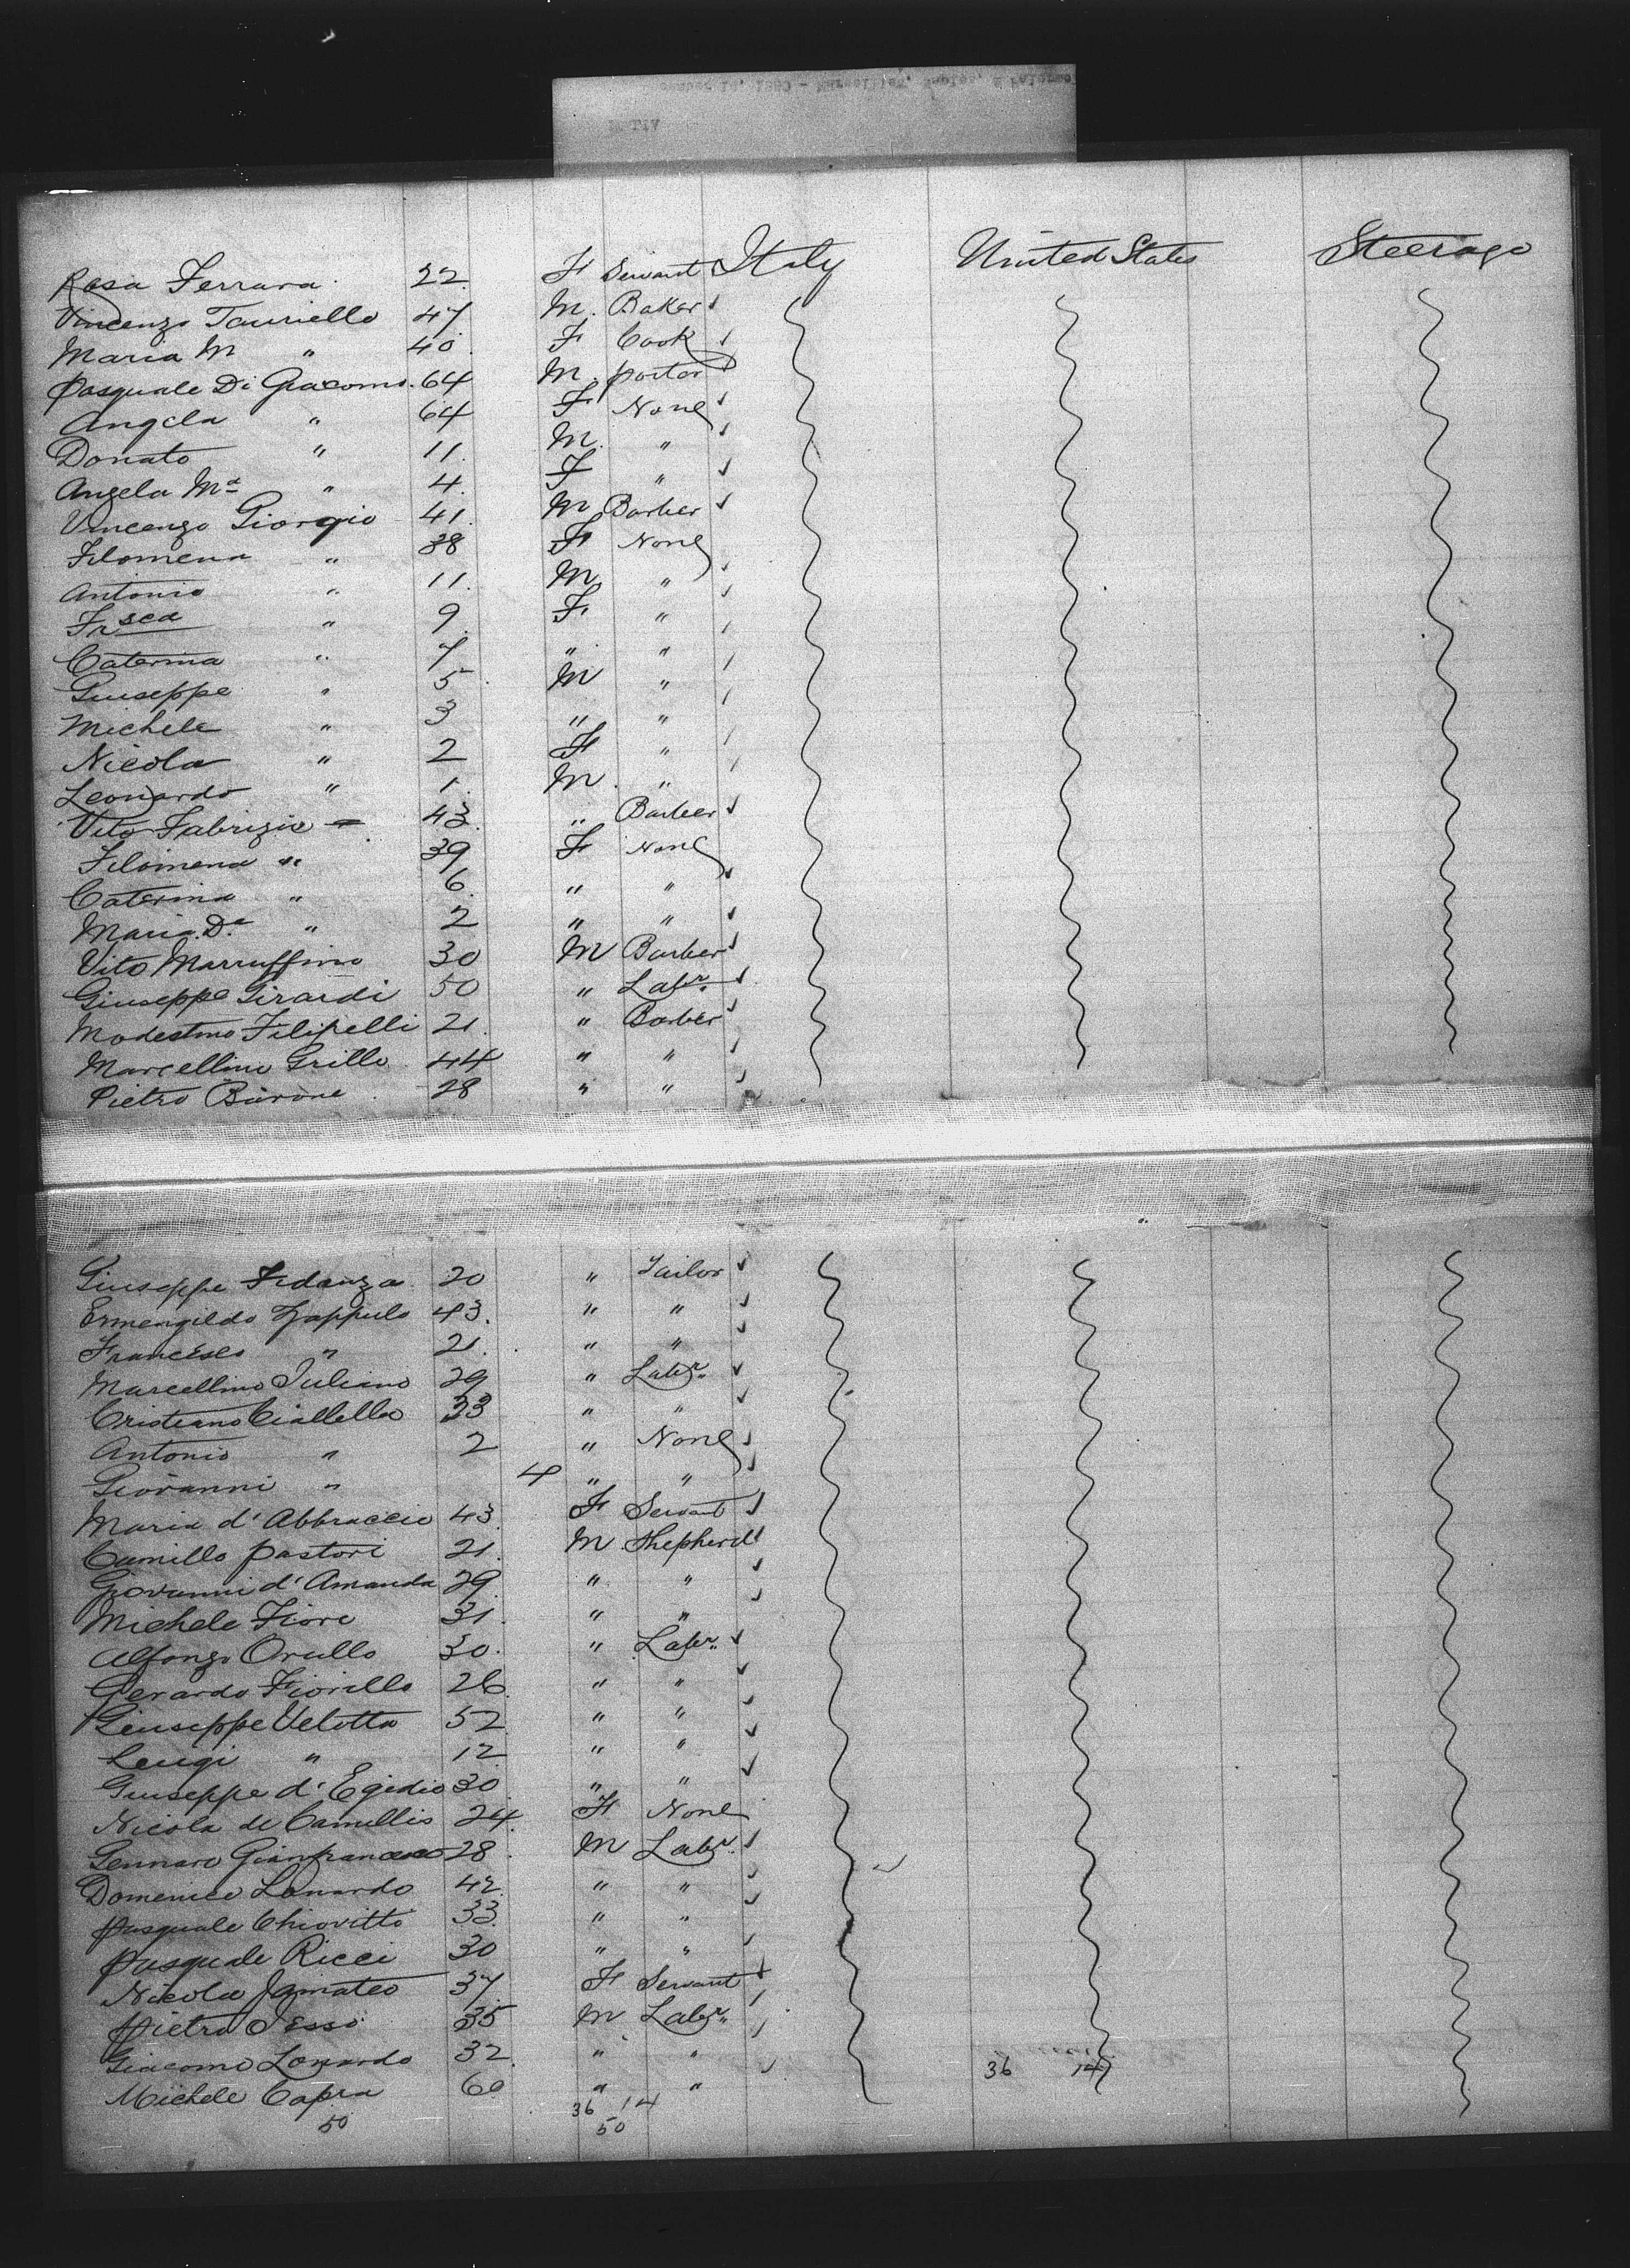 Rosa Ferrara 22 F Servant Italy United States Steerage
Vincenzo Tauriello 47 M. Baker
Maria M " 40 F Cook
Pasquale Di Giacomo 64 M. porter
Angela " 64 F None
Donato " 11 M. "
Angela Mª " 4 F "
Vincenzo Giorgio 41 M Barber
Filomena " 38 F None
Antonio " 11 M "
Frsca " 9 F "
Caterina " 7 " "
Giuseppe " 5 M "
Michele " 3 " "
Nicola " 2 F "
Leonardo " 1 M "
Vito Fabrizio 43 " Barber
Filomena " 39 F None
Caterina " 6 " "
Maria Dª " 2 " "
Vito Marruffino 30 M Barber
Giuseppe Girardi 50 " Labr.
Modestino Filipelli 21 " Barber
Marcellino Grillo 44 " "
Pietro Barone 28 " "
Giuseppe Fidanza 20 " Tailor
Ermengildo Zappulo 43 " "
Francesco " 21 " "
Marcellino Juliano 29 " Labr.
Cristiano Ciallella 33 " "
Antonio " 2 " None
Giovanni " 4 " "
Maria d'Abbraccio 43 F Servant
Camillo Pastori 21 M Shepherd
Giovanni d'Amanda 29 " "
Michele Fiore 31 " "
Alfonzo Orullo 30 " Labr.
Gerardo Fiorillo 26 " "
Giuseppe Velotta 52 " "
Luigi " 12 " "
Giuseppe d'Egidio 30 " "
Nicola de Camillis 24 F None
Gennaro Gianfrancesco 28 M Labr.
Domenico Lonardo 42 " "
Pasquale Chiovitti 33 " "
Pasquale Ricci 30 " "
Nicola Jamateo 37 F Servant
Pietro Jesso 35 M Labr.
Giacomo Lonardo 32 " "
Michele Capra 60 " " 36 14
50 36 14
50